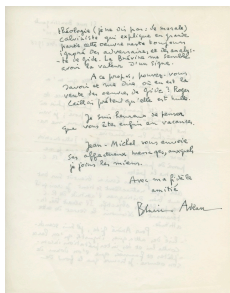 théologie (je ne dis pas, la morale)
calviniste qui explique en grande
partie cette oeuvre reste toujours
ignoré des adversaires et des analys-
tes de Gide. La Brévine me semble
avoir la valeur d'un signe.
A ce propos, pouvez-vous
savoir et me dire où en est la
vente des oeuvres de Gide ? Roger
prétend qu'elle est nulle.
Je suis heureux de penser
que vous êtes enfin en vacances.
Jean-Michel vous envoie
ses affectueux messages, auxquels
je joins les miens.
Avec ma fidèle
amitié